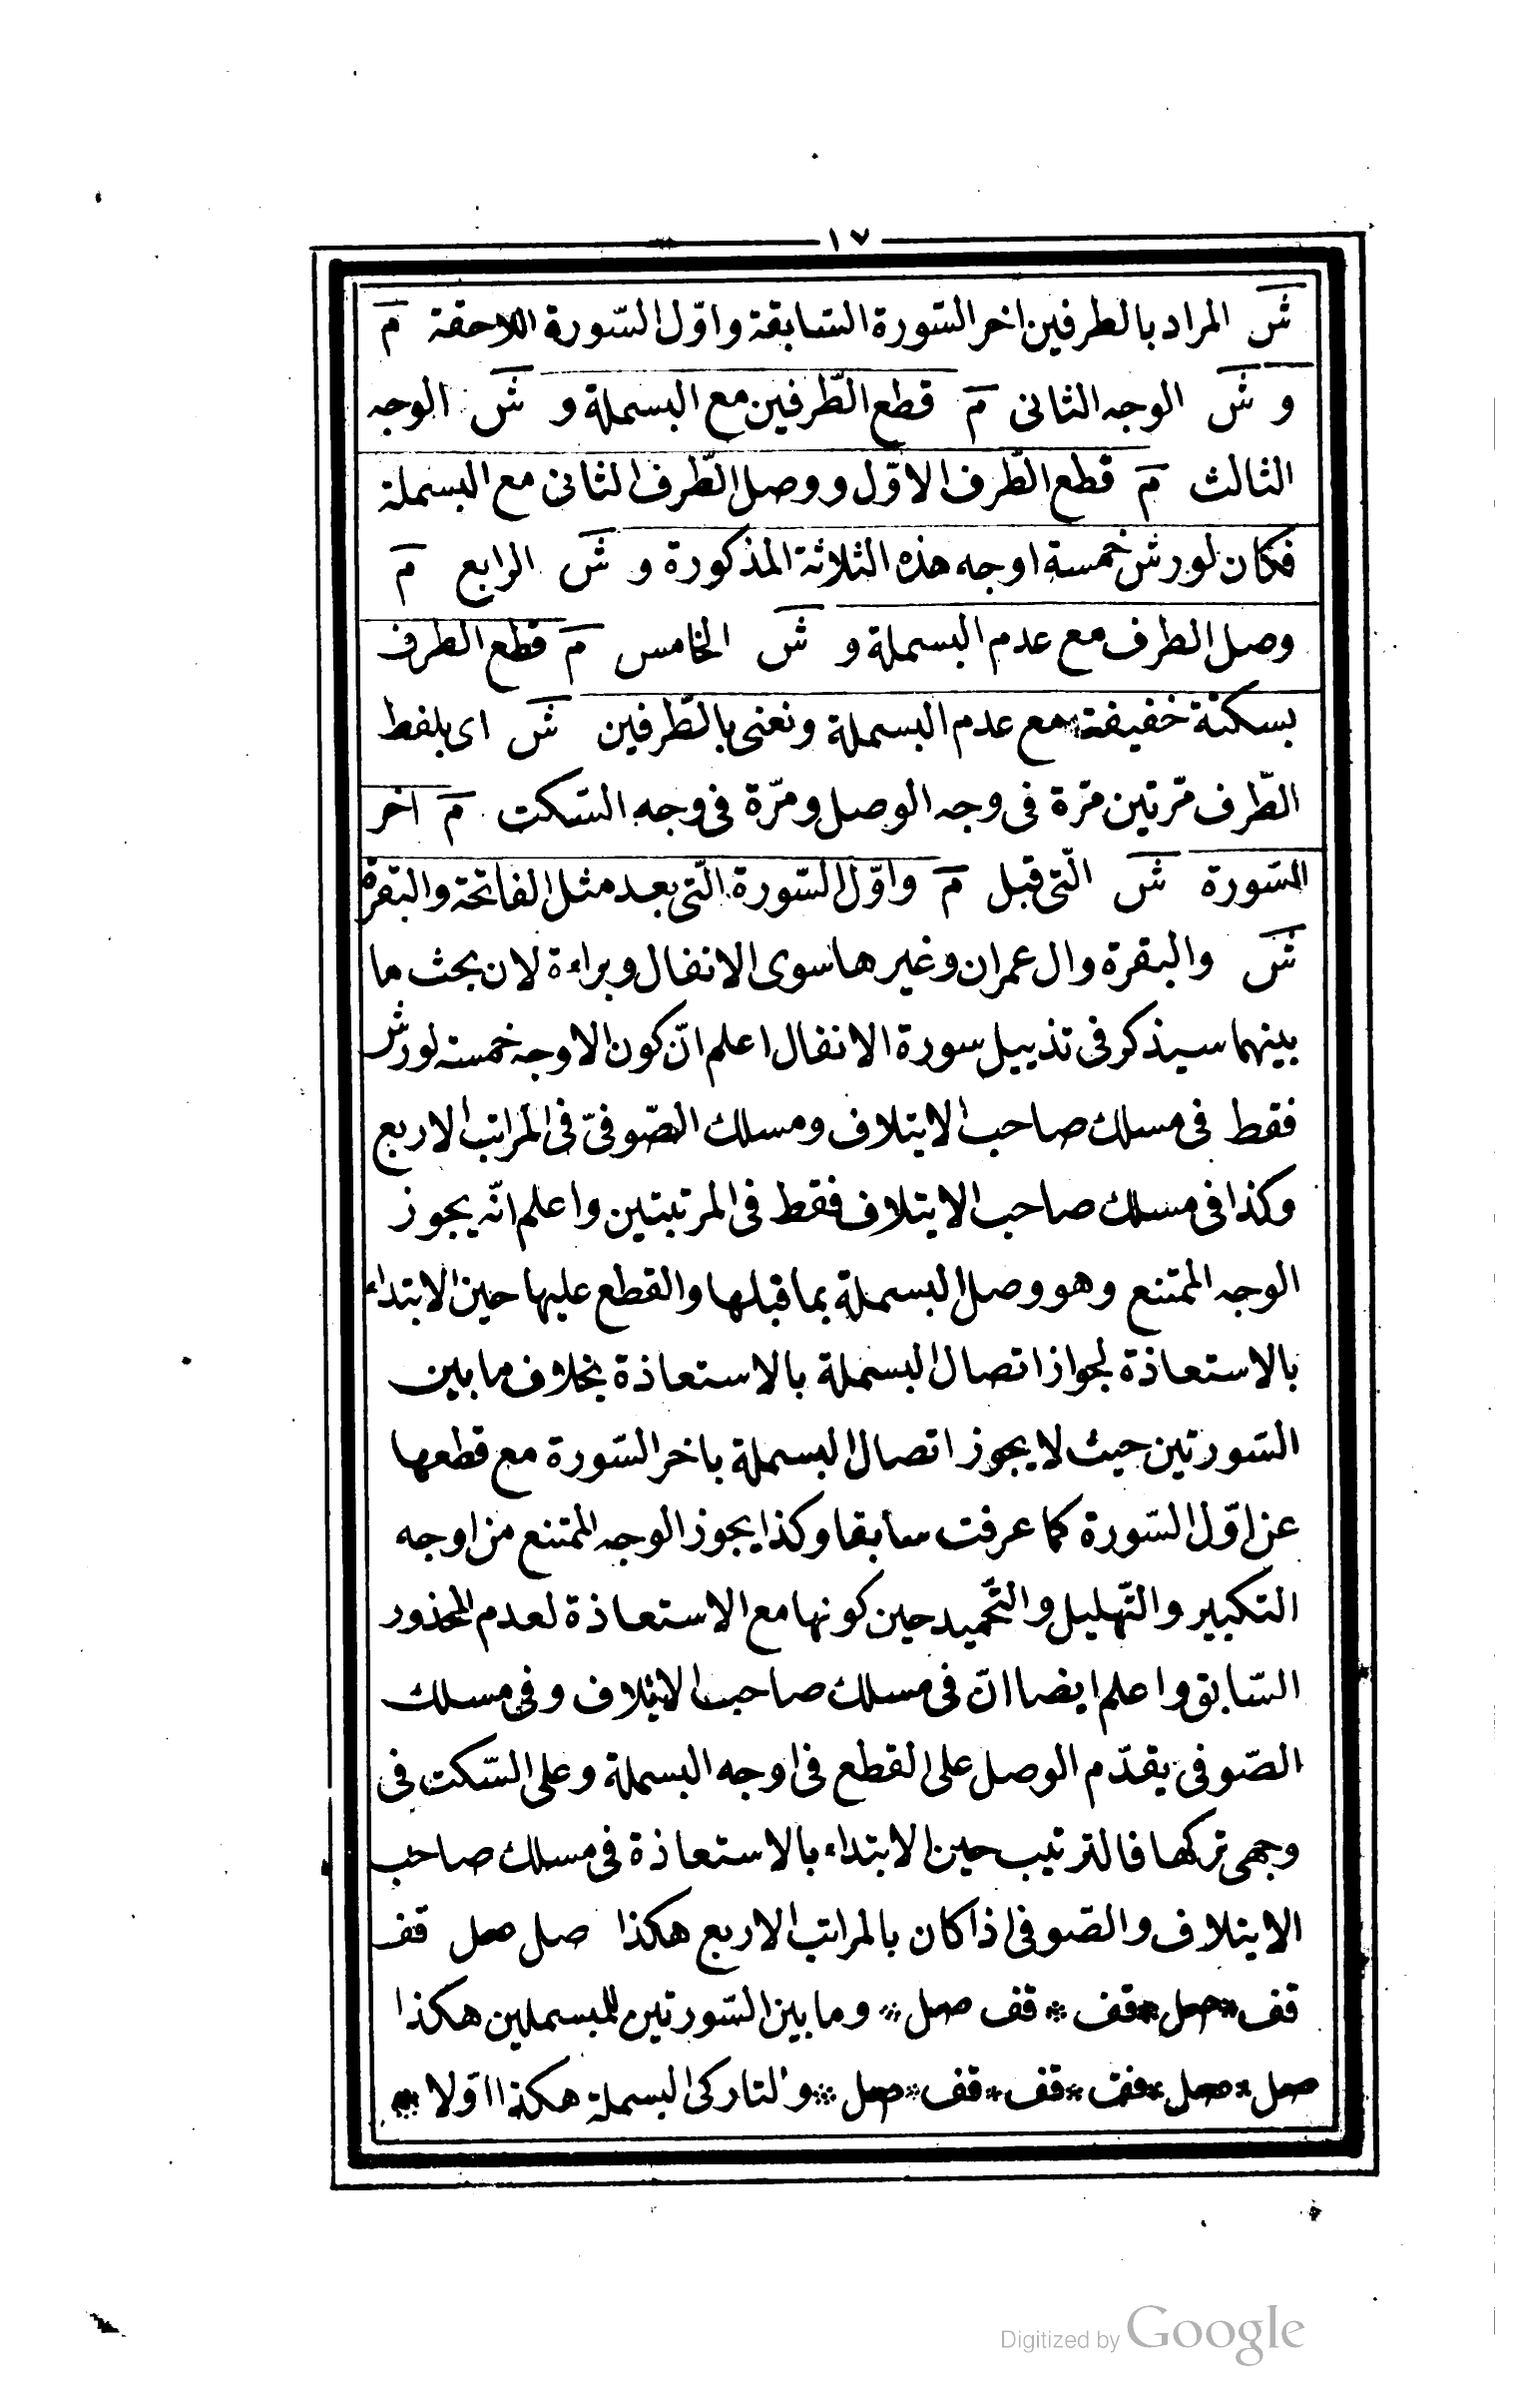 ١٧
ش المراد بالطرفين اخر السّورة السّابقة واوّل السّورة اللاحقة م
و ش الوجه الثانى م قطع الطّرفين مع البسملة و ش الوجه
الثالث م قطع الطّرف الاوّل ووصل الطّرف الثانى مع البسملة
فكان لورش خمسة اوجه هذه الثلاثة المذكورة و ش الرابع م
وصل الطرف مع عدم البسملة و ش الخامس م قطع الطرف
بسكتة خفيفة مع عدم البسملة ونعنى بالطّرفين ش اى بلفظ
الطّرف مرّتين مرّة فى وجه الوصل ومرّة فى وجه السّكت م اخر
السّورة ش الّتى قبل م واوّل السّورة الّتى بعد مثل الفاتحة والبقرة
ش والبقرة وال عمران وغيرها سوى الانفال وبراءة لان بحث ما
بينهما سيذكر فى تذييل سورة الانفال اعلم انّ كون الاوجه خمسة لورش
فقط فى مسلك صاحب الايتلاف ومسلك الصّوفىّ فى المراتب الاربع
وكذا فى مسلك صاحب الايتلاف فقط فى المرتبتين واعلم انّه يجوز
الوجه الممتنع وهو وصل البسملة بما قبلها والقطع عليها حين الابتداء
بالاستعاذة لجواز اتصال البسملة بالاستعاذة بخلاف ما بين
السّورتين حيث لا يجوز اتصال البسملة باخر السّورة مع قطعها
عن اوّل السّورة كما عرفت سابقا وكذا يجوز الوجه الممتنع من اوجه
التكبير والتّهليل والتّحميد حين كونها مع الاستعاذة لعدم المحذور
السّابق واعلم ايضا انّ فى مسلك صاحب الايتلاف وفى مسلك
الصّوفى يقدّم الوصل على القطع فى اوجه البسملة وعلى السّكت فى
وجهى تركها فالترتيب حين الابتداء بالاستعاذة فى مسلك صاحب
الايتلاف والصّوفى اذا كان بالمراتب الاربع هكذا صل صل قف
قف * صل * قف * قف صل * وما بين السّورتين للمبسملين هكذا
صل * صل * قف * قف * قف * صل * ولتاركى البسملة هكذا اوّلا *
Digitized by Google